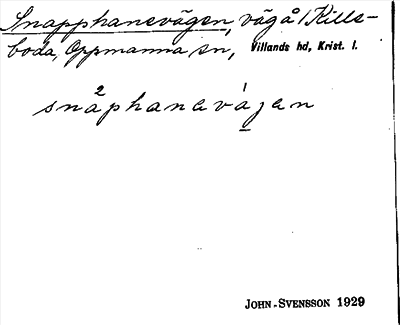 Snapphanevägen, väg å Kills-
boda, Oppmanna sn, Villands hd, Krist. l.
snåphanavájen
JOHN-SVENSSON 1929